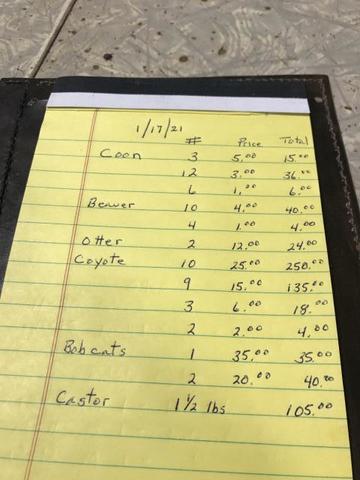 1/17/21
# Price Total
Coon 3 5.00 15.00
12 3.00 36.00
6 1.00 6.00
Beaver 10 4.00 40.00
4 1.00 4.00
Otter 2 12.00 24.00
Coyote 10 25.00 250.00
9 15.00 135.00
3 6.00 18.00
2 2.00 4.00
Bobcats 1 35.00 35.00
2 20.00 40.00
Castor 1 1/2 lbs 105.00